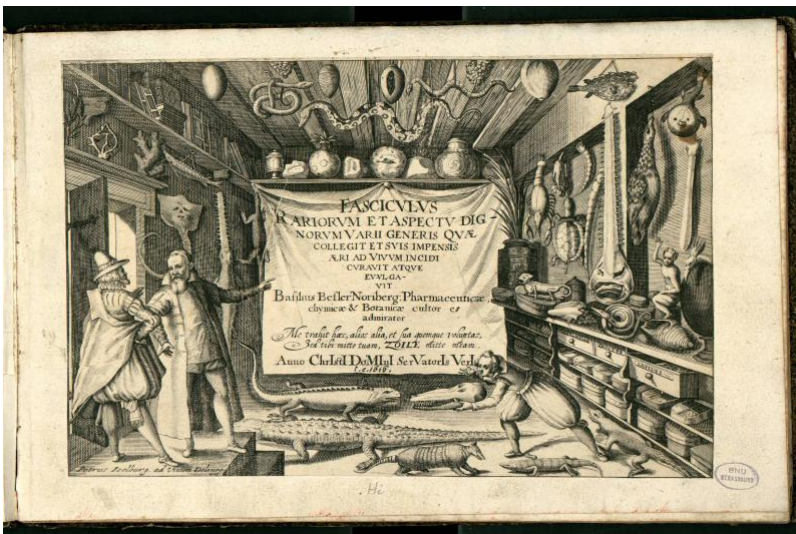 FASCICVLVS
RARIORVM ET ASPECTV DIG-
NORVM VARII GENERIS QVÆ
COLLEGIT ET SVIS IMPENSIS
ÆRI AD VIVVM INCIDI
CVRAVIT ATQVE
EVVLGA-
VIT
Basilius Besler Noriberg: Pharmaceuticæ,
chymicæ & Botanicæ cultor et
admirator
Me trahit hæc, alios alia, et sua quemque voluptas,
Sed tibi mitto tuam, ZOILE mitte
Anno ChrIstI DoMInI SerVatorIs VerI
i.e. 1616.
Petrus Iselburg ad Vivum
Hi
BNU
STRASBOURG